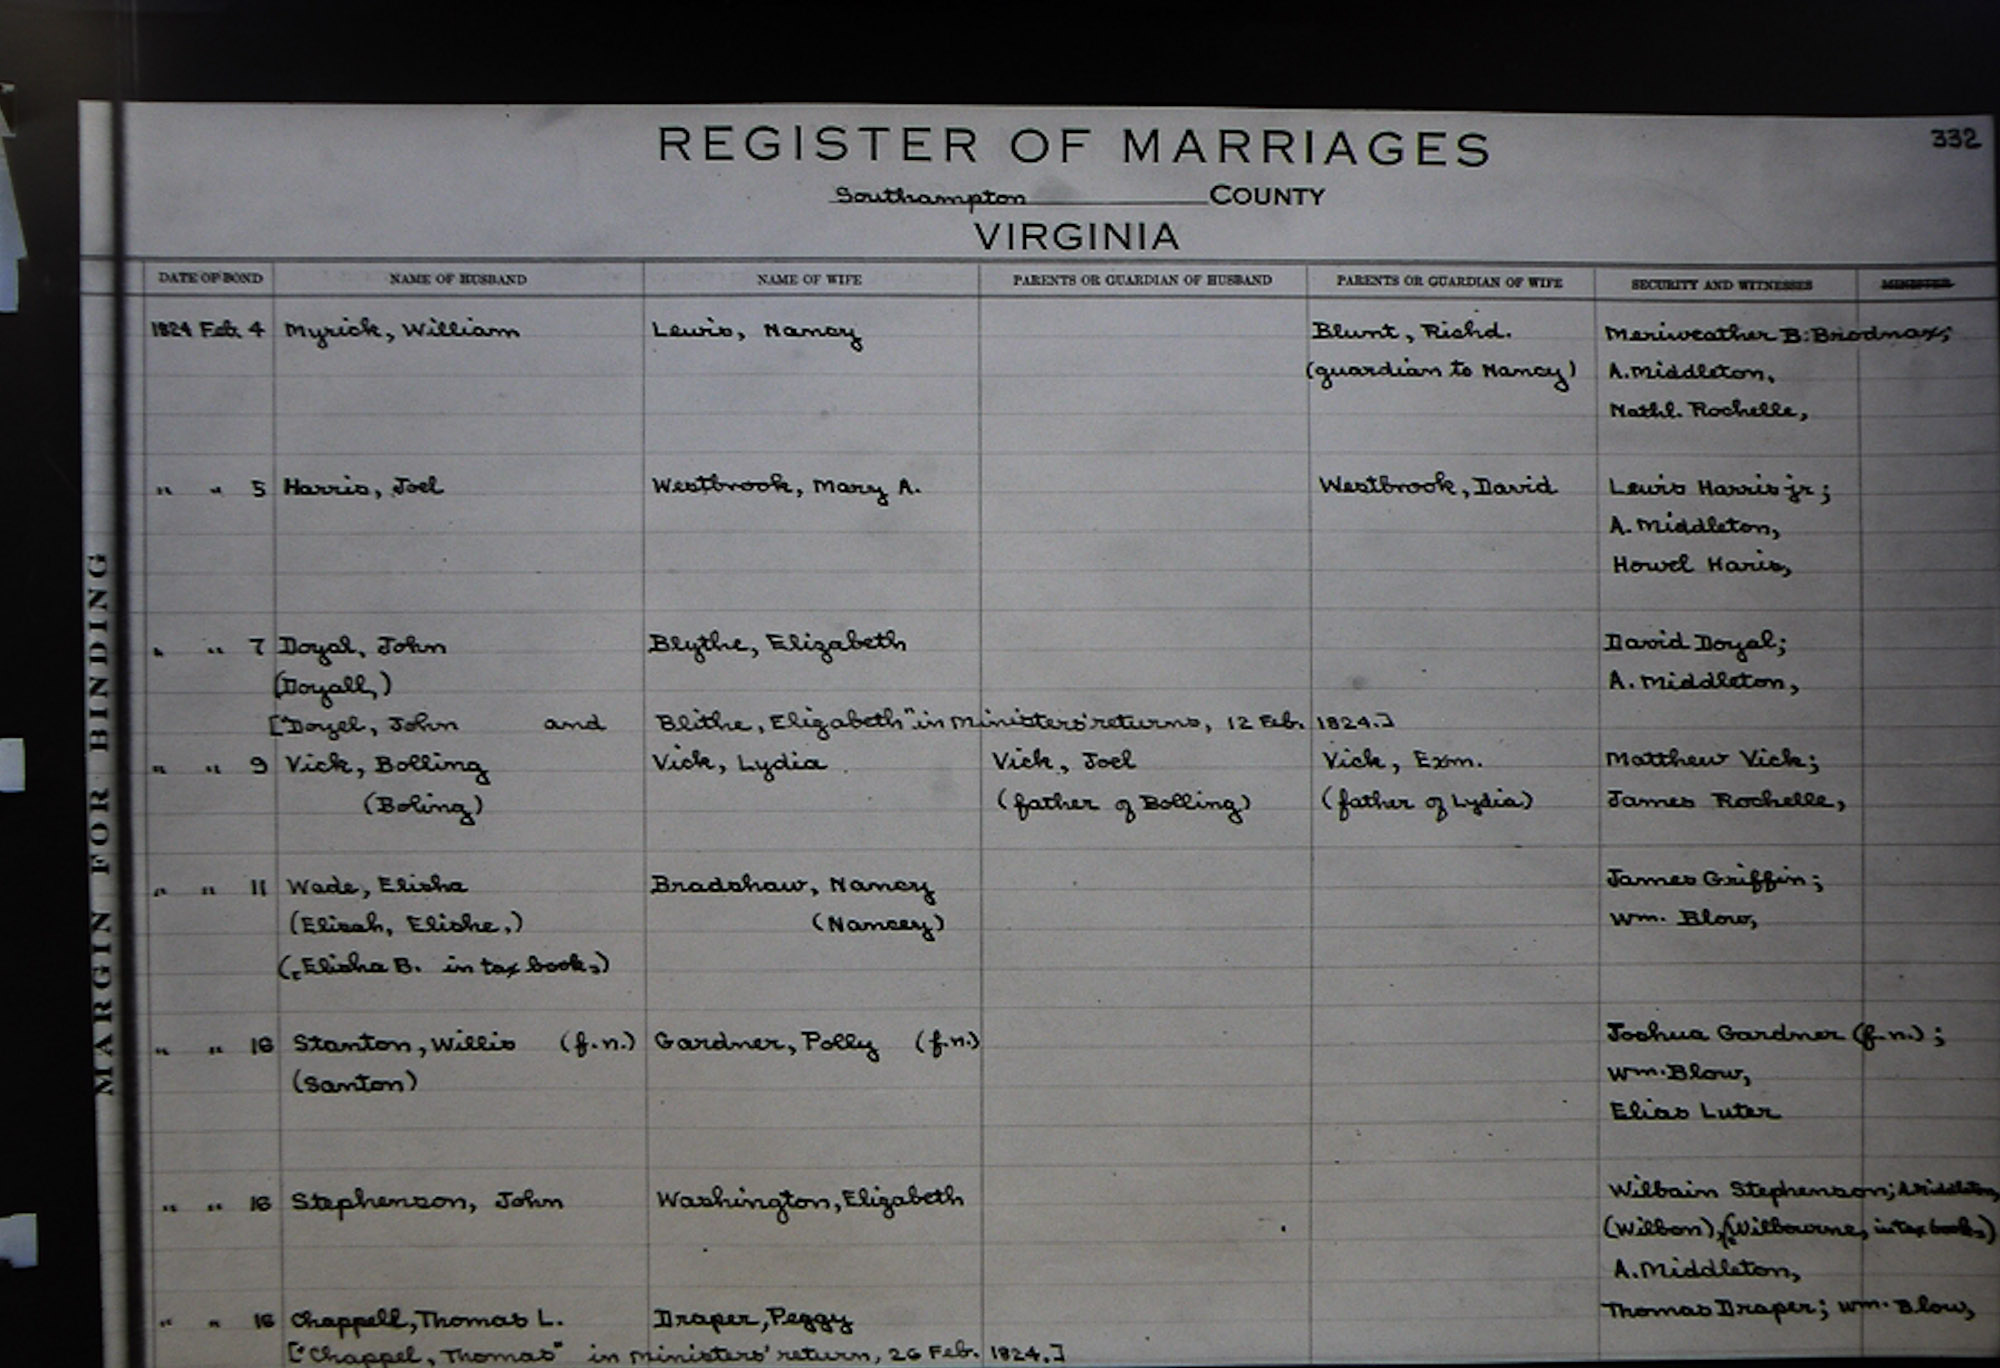 332
REGISTER OF MARRIAGES
Southampton COUNTY
VIRGINIA
DATE OF BOND NAME OF HUSBAND NAME OF WIFE PARENTS OR GUARDIAN OF HUSBAND PARENTS OR GUARDIAN OF WIFE SECURITY AND WITNESSES MINISTER
1824 Feb. 4 Myrick, William Lewis, Nancy Blunt, Richd. Meriweather B. Brodnax;
(guardian to Nancy) A. Middleton,
Nathl. Rochelle,
" " 5 Harris, Joel Westbrook, Mary A. Westbrook, David Lewis Harris jr;
A. Middleton,
Howel Haris,
" " 7 Doyal, John Blythe, Elizabeth David Doyal;
(Doyall,) A. Middleton,
["Doyel, John and Blithe, Elizabeth" in ministers' returns, 12 Feb. 1824.]
" " 9 Vick, Bolling Vick, Lydia Vick, Joel Vick, Exm. Matthew Vick;
(Boling) (father of Bolling) (father of Lydia) James Rochelle,
" " 11 Wade, Elisha Bradshaw, Nancy James Griffin;
(Elisah, Elishe,) (Nancey) Wm. Blow,
(, Elisha B. in tax books,)
" " 16 Stanton, Willis (f.n.) Gardner, Polly (f.n.) Joshua Gardner (f.n.);
(Santon) Wm. Blow,
Elias Luter
" " 16 Stephenson, John Washington, Elizabeth Wilbain Stephenson; A Middleton,
(Wilbon), (Wilbourne, in tax books,)
A. Middleton,
" " 16 Chappell, Thomas L. Draper, Peggy Thomas Draper; Wm. Blow,
["Chappel, Thomas" in ministers' return, 26 Feb. 1824.]
MARGIN FOR BINDING